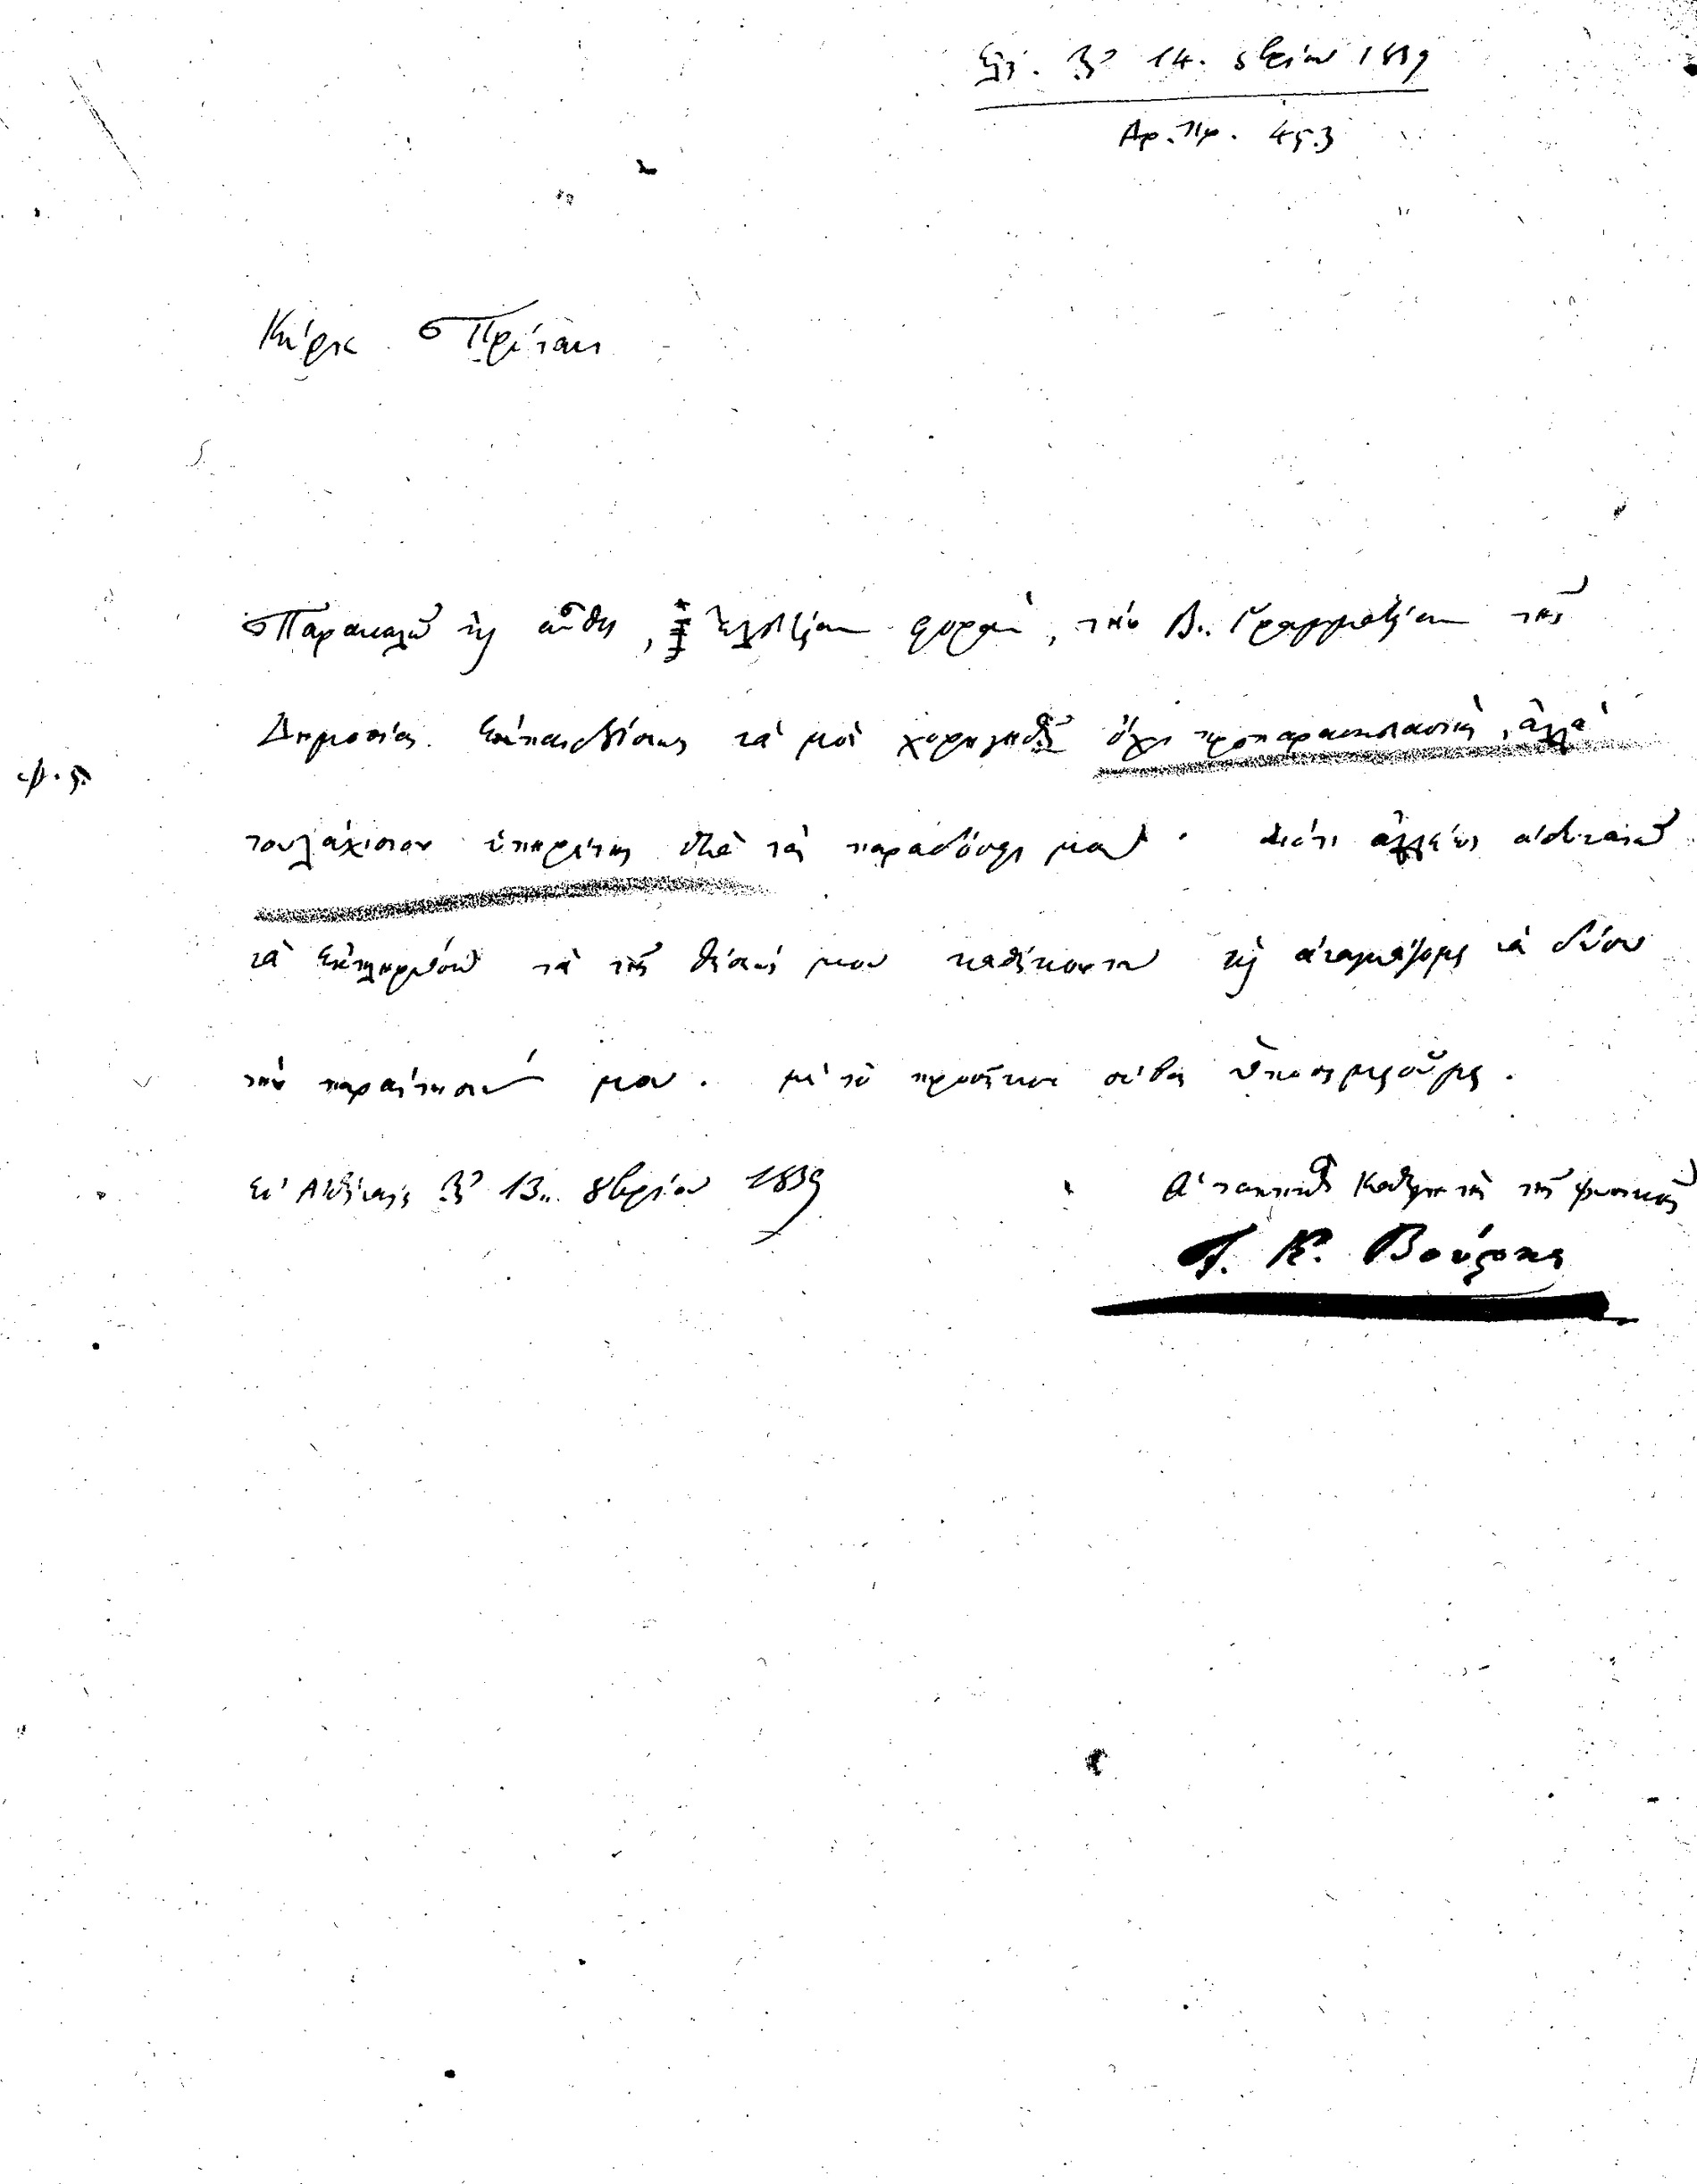 τῇ 14. 8βρίου 1839
Ἀρ. Πρ. 453
Κύριε Πρύτανι
Παρακαλῶ καὶ αὖθις, τελευταίαν φοράν, τὴν Β. Γραμματείαν τῆς
Δημοσίας Ἐκπαιδεύσεως νὰ μοὶ χορηγηθῇ ὄχι προπαρασκευαστὴς, ἀλλὰ
τουλάχιστον ὑπηρέτης διὰ τὰς παραδόσεις μου· διότι ἀλλέως ἀδυνατῶ
νὰ ἐκπληρώσω τὰ τῆς θέσεώς μου καθήκοντα καὶ ἀναγκάζομαι νὰ δώσω
τὴν παραίτησίν μου. μὲ τὸ προσῆκον σέβας ὑποσημειοῦμαι.
Ἐν Ἀθήναις τῇ 13. 8βρίου 1839
Ὁ τακτικὸς Καθηγητὴς τῆς φυσικῆς
Γ. Κ. Βούρης